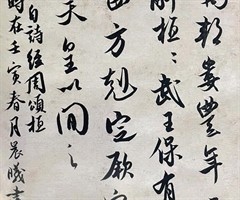 邦婁豐年
解桓〻武王保有
四方克定厥
天皇以間之
詩經周頌桓
時在壬寅春月晨曦書